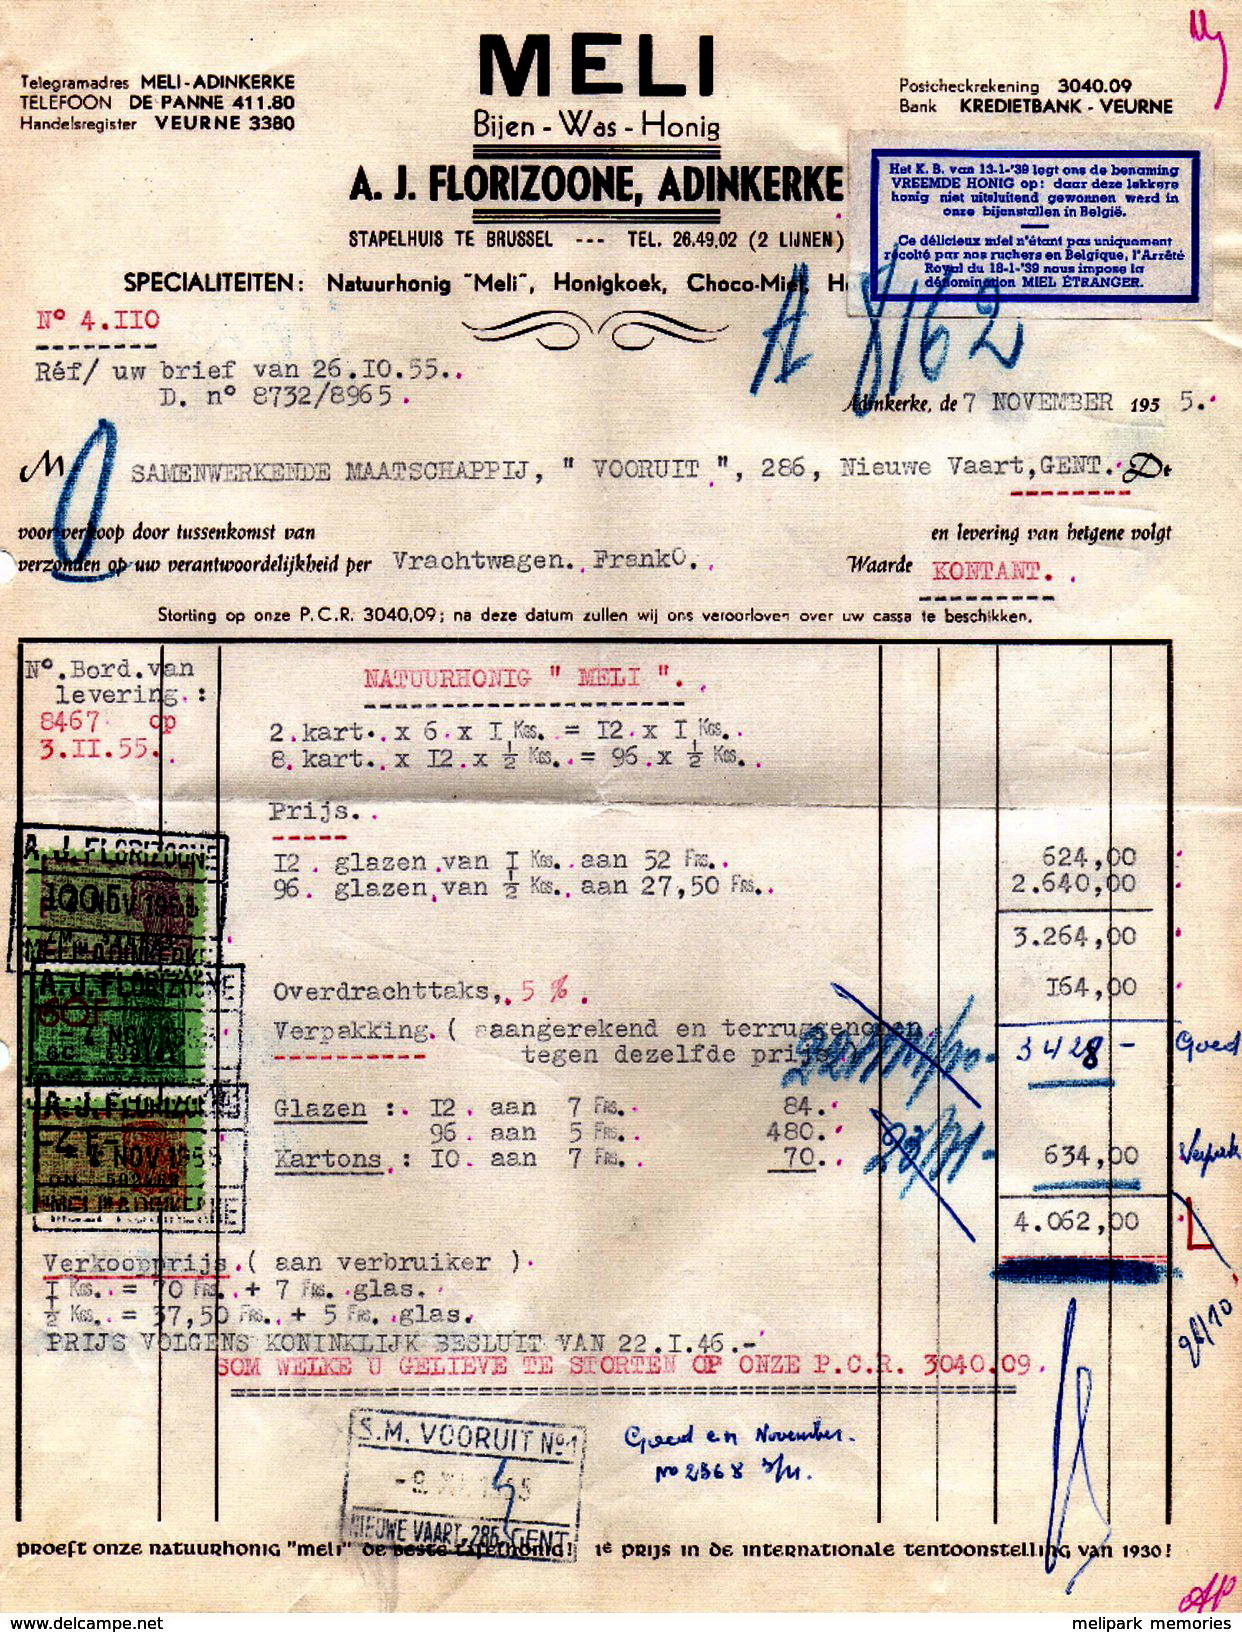 MELI
Bijen - Was - Honig
Telegramadres MELI-ADINKERKE
TELEFOON DE PANNE 411.80
Handelsregister VEURNE 3380
Postcheckrekening 3040.09
Bank KREDIETBANK - VEURNE
A. J. FLORIZOONE, ADINKERKE
STAPELHUIS TE BRUSSEL --- TEL. 26.49.02 (2 LIJNEN)
SPECIALITEITEN: Natuurhonig "Meli", Honigkoek, Choco-Miel, H
Het K. B. van 13-1-'39 legt ons de benaming
VREEMDE HONIG op: daar deze lekkere
honig niet uitsluitend gewonnen werd in
onze bijenstallen in België.
Ce délicieux miel n'étant pas uniquement
récolté par nos ruchers en Belgique, l'Arrêté
Royal du 18-1-'39 nous impose la
dénomination MIEL ÉTRANGER.
A 8162
N° 4.IIO
Réf/ uw brief van 26.IO.55..
D. n° 8732/8965.
Adinkerke, de 7 NOVEMBER 195 5.
M SAMENWERKENDE MAATSCHAPPIJ, " VOORUIT ", 286, Nieuwe Vaart,GENT. Dt
voor verkoop door tussenkomst van
en levering van hetgene volgt
verzonden op uw verantwoordelijkheid per Vrachtwagen. FrankO.
Waarde KONTANT.
Storting op onze P.C.R. 3040,09; na deze datum zullen wij ons veroorloven over uw cassa te beschikken.
N°.Bord.van
levering.:
8467 op
3.II.55.
NATUURHONIG " MELI ".
2.kart. x 6 x I KGS. = I2.x I KGS.
8.kart. x I2.x ½ KGS. = 96.x ½ KGS.
Prijs.
I2. glazen van I KGS. aan 52 FRS. 624,00
96. glazen van ½ KGS. aan 27,50 FRS. 2.640,00
3.264,00
Overdrachttaks, 5 %. I64,00
Verpakking.( aangerekend en terruggenomen
tegen dezelfde prijs )
3428 - Goed
Glazen : I2. aan 7 FRS. 84.
96. aan 5 FRS. 480.
Kartons : IO. aan 7 FRS. 70. 634,00
4.062,00
A. J. FLORIZOONE
NOV 1955
"MELI" ADINKERKE
A. J. FLORIZOONE
NOV 1955
A. J. FLORIZOONE
NOV 1955
"MELI" ADINKERKE
Verkoopprijs.( aan verbruiker ).
I KGS. = 70 FRS. + 7 FRS. glas.
½ KGS. = 37,50 FRS. + 5 FRS. glas.
PRIJS VOLGENS KONINKLIJK BESLUIT VAN 22.I.46.-
SOM WELKE U GELIEVE TE STORTEN OP ONZE P.C.R. 3040.09.
26/10
S.M. VOORUIT No 1
NIEUWE VAART, 286, GENT
Goed en November.
No 2568 3/11.
proeft onze natuurhonig "meli" de beste tafelhonig! 1e prijs in de internationale tentoonstelling van 1930!
www.delcampe.net
melipark memories